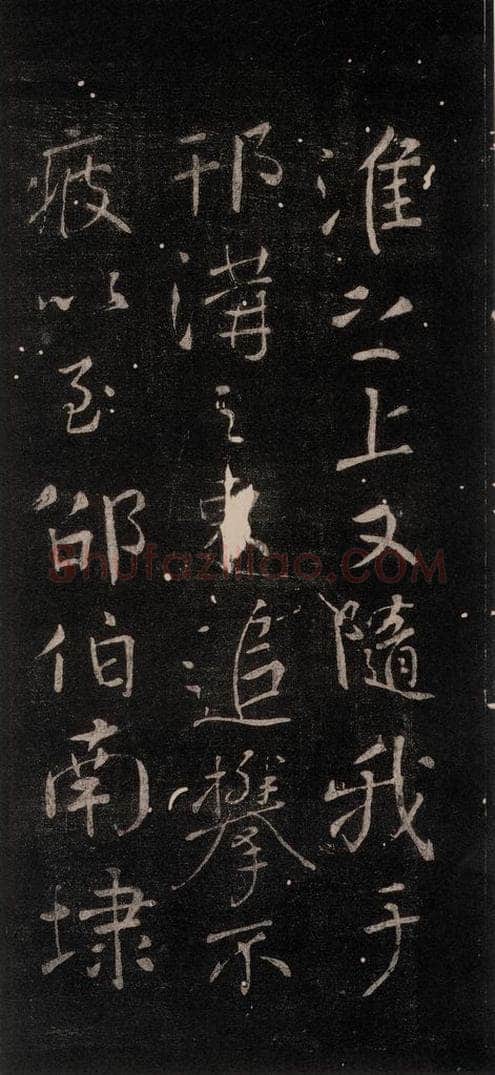 淮之上又隨我于
邗溝之東追攀不
疲以至邵伯南埭